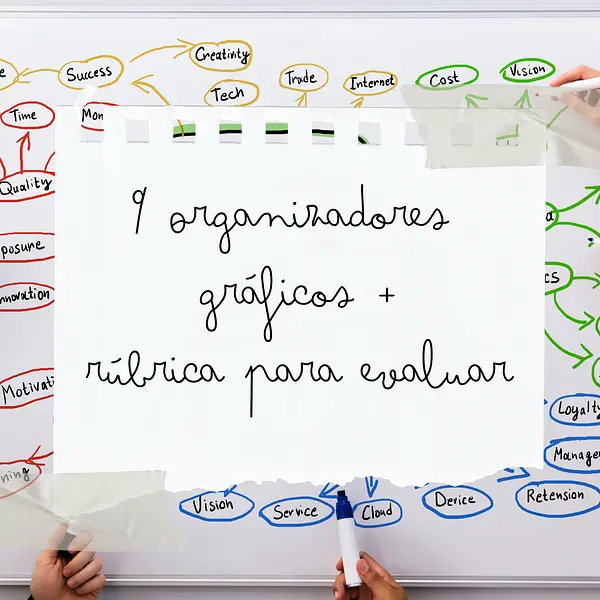 Creativity
Success
Tech
Trade
Internet
Cost
Vision
Time
Mon
Quality
posure
nnovation
Motivati
ning
9 organizadores
gráficos +
rúbrica para evaluar
a
cs
Loyalty
Manage
Retension
Vision
Service
Cloud
Derice